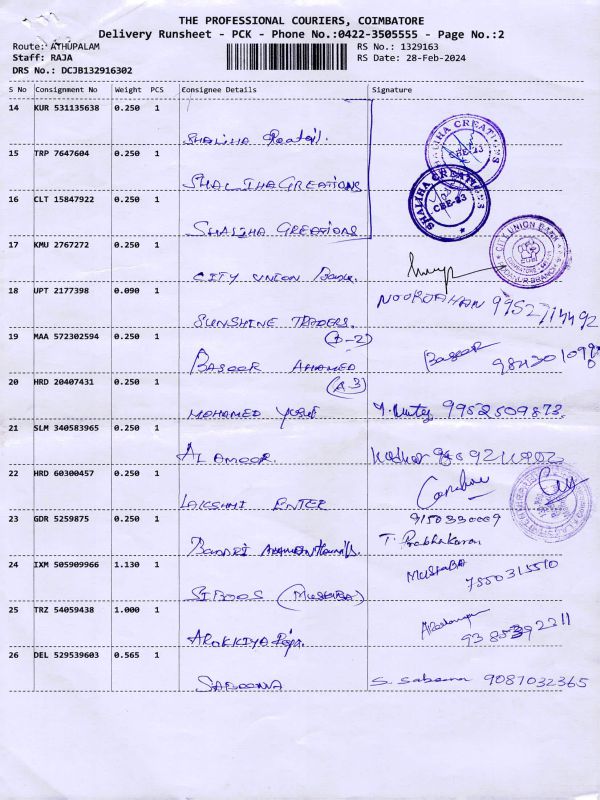 THE PROFESSIONAL COURIERS, COIMBATORE
Delivery Runsheet - PCK - Phone No.:0422-3505555 - Page No.:2
Route: ATHUPALAM RS No.: 1329163
Staff: RAJA RS Date: 28-Feb-2024
DRS No.: DCJB132916302
S No Consignment No Weight PCS Consignee Details Signature
14 KUR 531135638 0.250 1
SHALIHA
SHALIHA CREATIONS
CBE-23
15 TRP 7647604 0.250 1
SHALIHA CREATIONS
SHALIHA CREATIONS
CBE-23
16 CLT 15847922 0.250 1
SHALIHA CREATIONS
CITY UNION BANK
17 KMU 2767272 0.250 1
CITY UNION Bank
18 UPT 2177398 0.090 1
NOORJAHAN 9952714492
SUNSHINE TRADERS.
19 MAA 572302594 0.250 1
(D-2)
BASEER AHAMED Baseer
20 HRD 20407431 0.250 1
(A3)
MOHAMED 9952509873
21 SLM 340583965 0.250 1
AL AMEER.
22 HRD 60300457 0.250 1
LAKSHMI ENTER
23 GDR 5259875 0.250 1
9150330009
T. Prabhakaran
24 IXM 505909966 1.130 1
MUSTABA
7550315510
(MUSTABA)
25 TRZ 54059438 1.000 1
AROKKIYA Raja.
26 DEL 529539603 0.565 1
SABEENA S. Sabeena 9087032365